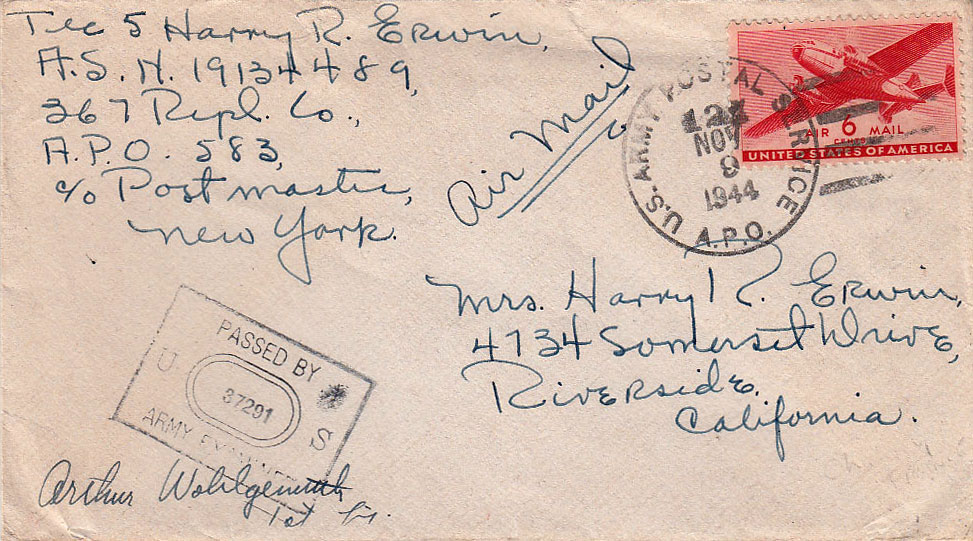 Tec 5 Harry R. Erwin,
A.S.N. 19134489,
367 Repl. Co.,
A.P.O. 583,
c/o Postmaster,
New York.
Air Mail
U.S. ARMY POSTAL SERVICE
NOV
9
1944
A.P.O.
AIR 6 MAIL
CENTS
UNITED STATES OF AMERICA
Mrs. Harry R. Erwin,
4734 Somerset Drive,
Riverside,
California.
PASSED BY
U 37291 S
ARMY EXAMINER
Arthur Wohlgemuth
1st Lt.